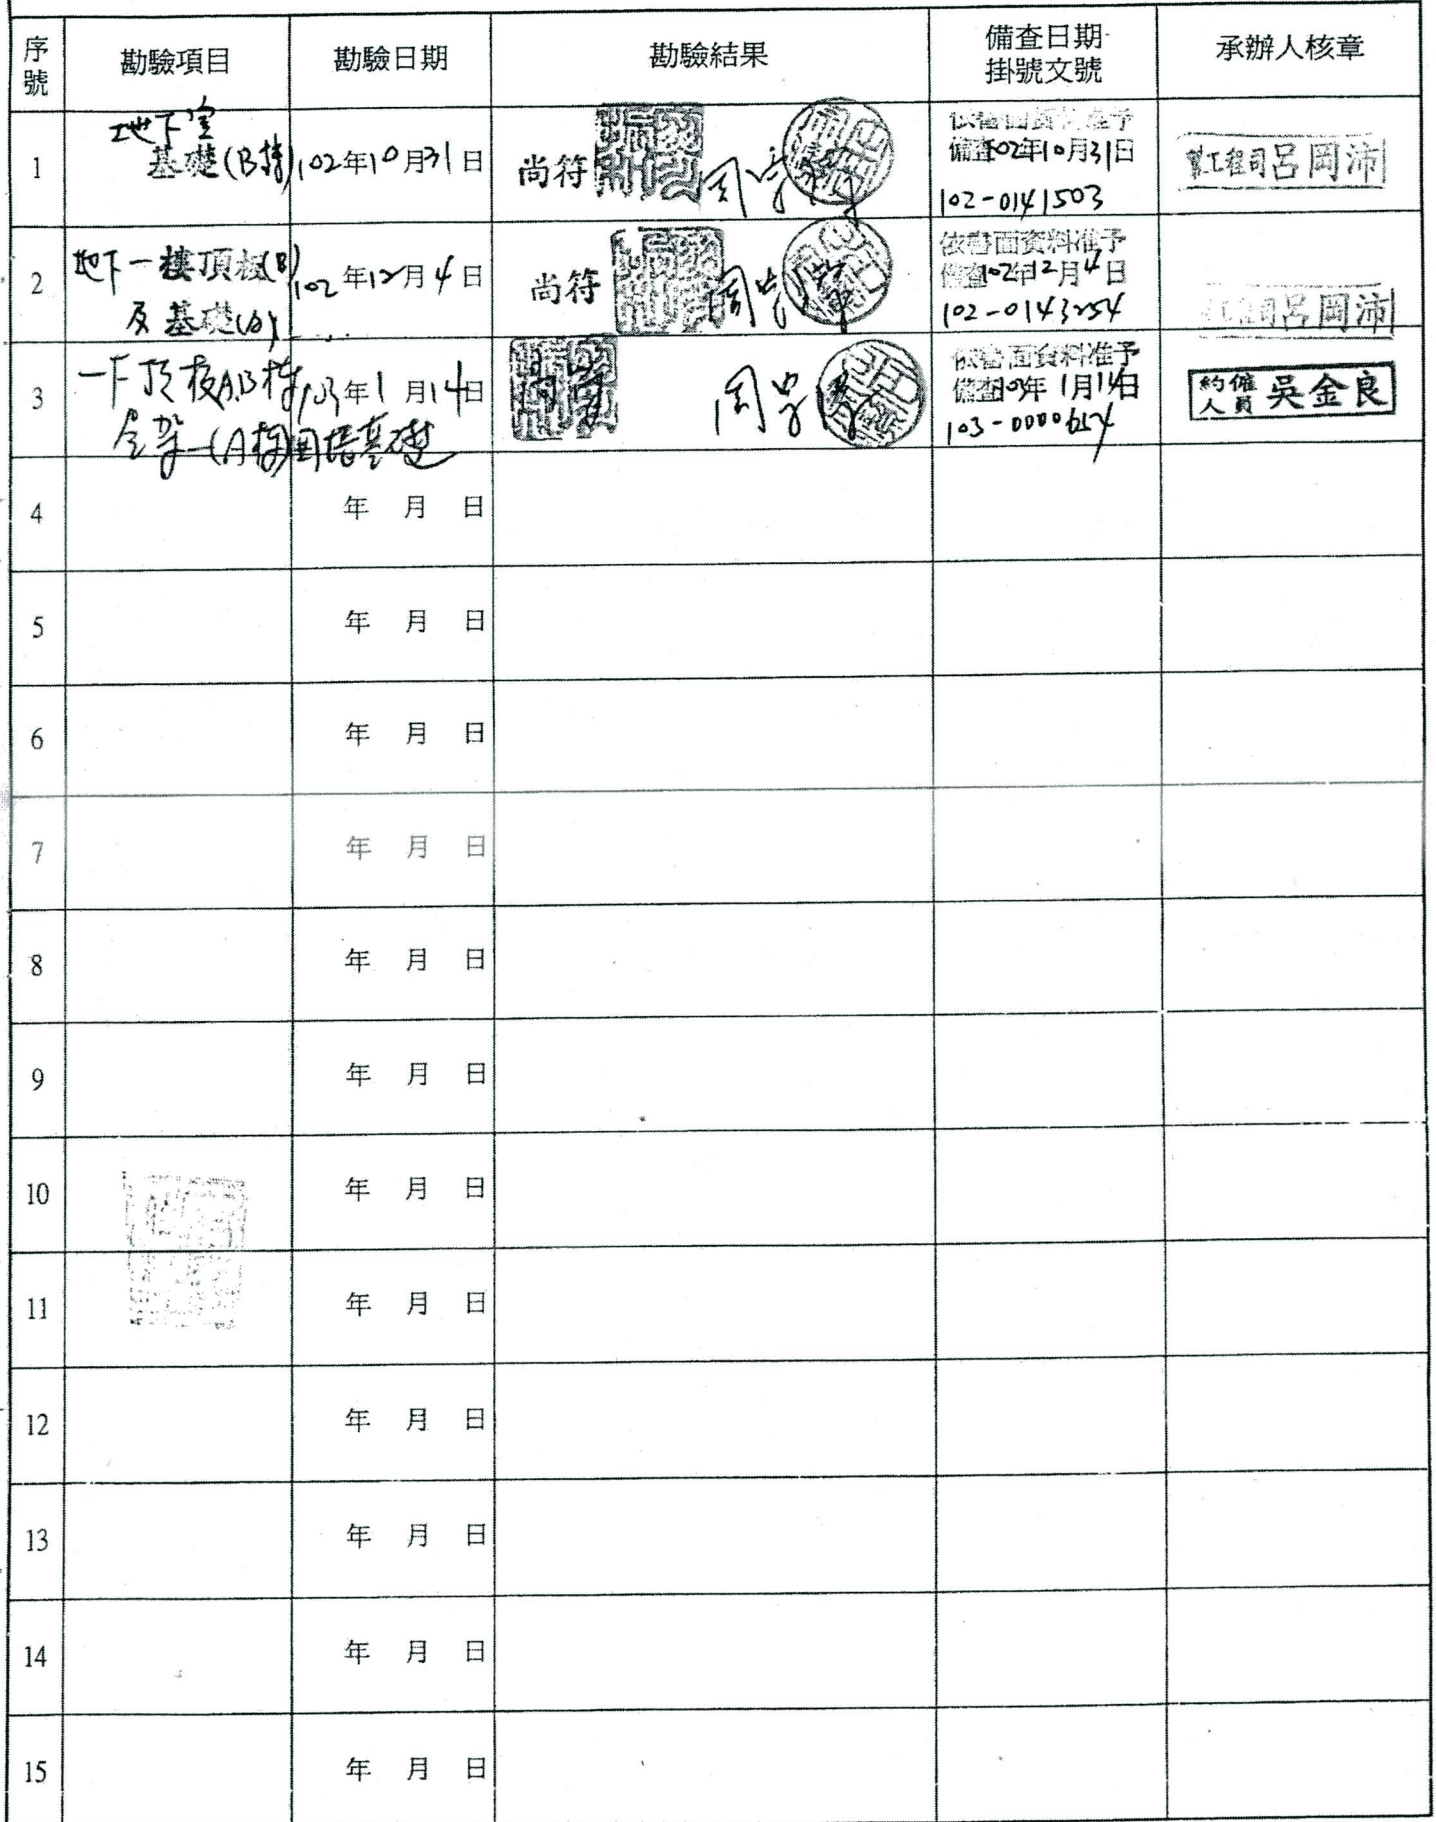 序號 勘驗項目 勘驗日期 勘驗結果 備查日期 掛號文號 承辦人核章
地下室
1 基礎(B棟) 102年10月31日 尚符 依書面資料准予
備查102年10月31日
102-0141503
工程司呂岡沛
2 地下一樓頂板(B) 102年12月4日 尚符 依書面資料准予
及基礎(A) 備查102年12月4日
102-0143254
工程司呂岡沛
3 一F頂板A.B棟 103年1月14日 周 依書面資料准予
(A棟)圍牆基礎 備查103年1月14日
103-0000654
約僱人員 吳金良
4 年 月 日
5 年 月 日
6 年 月 日
7 年 月 日
8 年 月 日
9 年 月 日
10 年 月 日
11 年 月 日
12 年 月 日
13 年 月 日
14 年 月 日
15 年 月 日